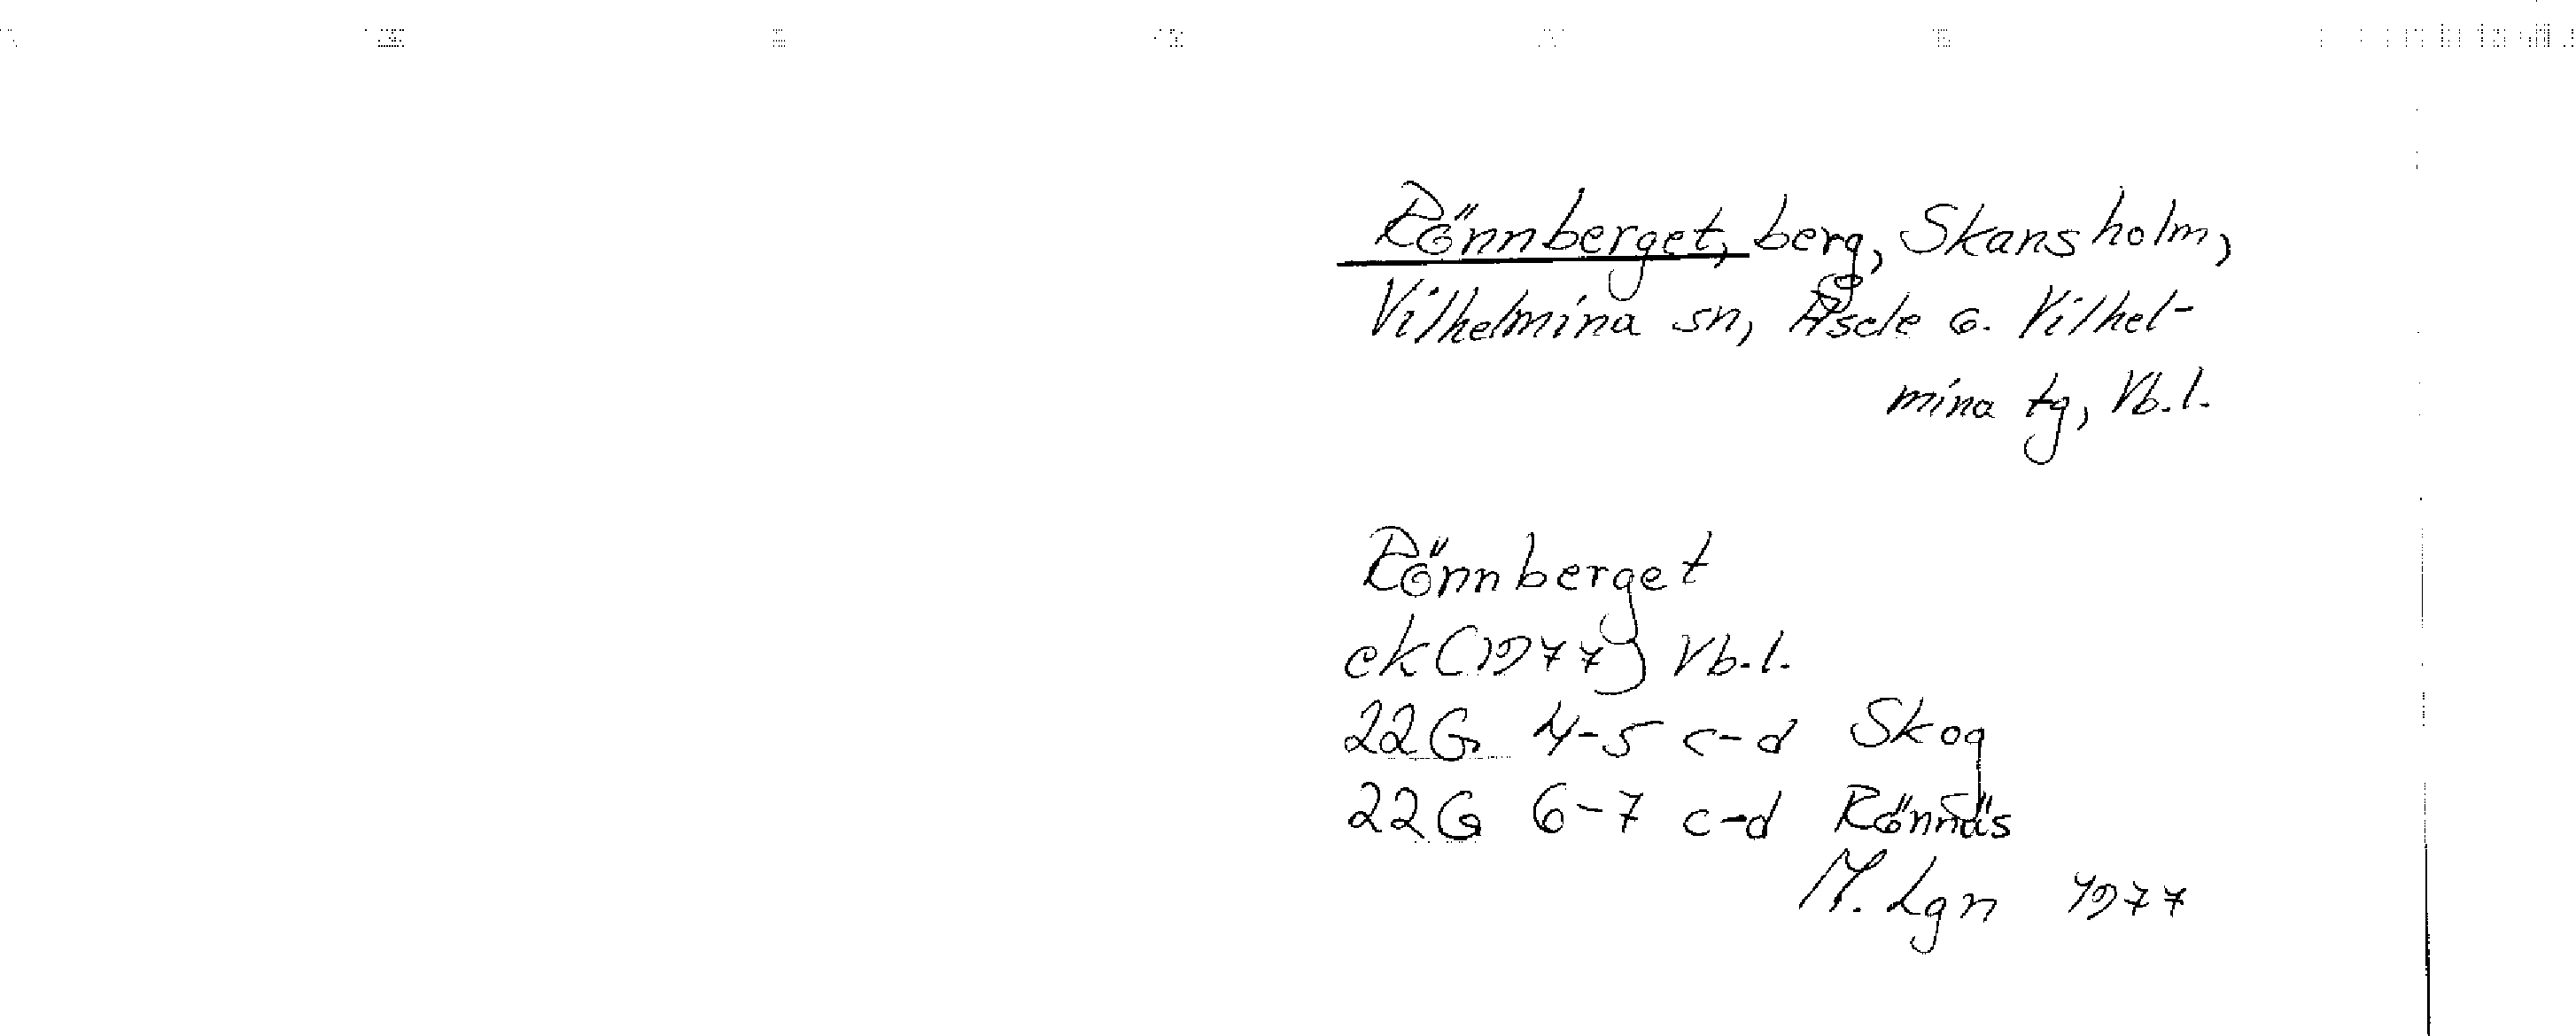 Rönnberget, berg, Skansholm,
Vilhelmina sn, Åsele o. Vilhel-
mina tg, Vb.l.
Rönnberget
ek (1977) Vb.l.
22G 4-5 c-d Skog
22G 6-7 c-d Rönnäs
M. Lgn 1977